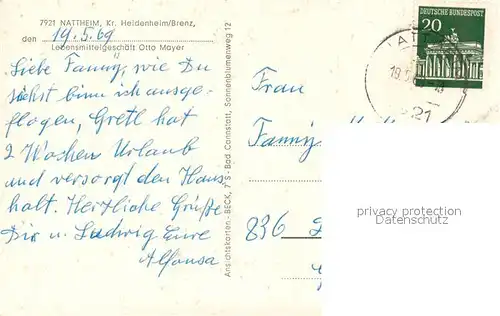 7921 NATTHEIM, Kr. Heidenheim/Brenz,
den 19.5.69
Lebensmittelgeschäft Otto Mayer
Liebe Fanny, wie Du
siehst binn ich ausge-
flogen, Gretl hat
2 Wochen Urlaub
und versorgt den Haus
halt. Herzliche Grüße
Dir u. Ludwig Eure
Alfonsa
Ansichtskarten-BECK, 7 S - Bad Cannstatt, Sonnenblumenweg 12
DEUTSCHE BUNDESPOST
20
Frau
Fanny
836
privacy protection
Datenschutz